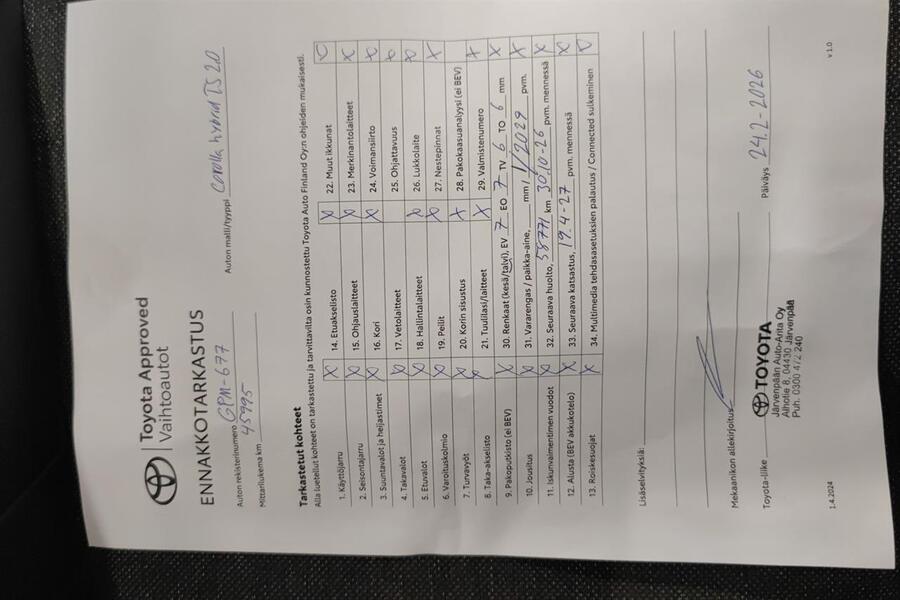 Toyota Approved
Vaihtoautot
ENNAKKOTARKASTUS
Auton rekisterinumero GPM-677 Auton malli/tyyppi Corolla hybrid TS 2.0
Mittarilukema km 45995
Tarkastetut kohteet
Alla luetellut kohteet on tarkastettu ja tarvittavilta osin kunnostettu Toyota Auto Finland Oy:n ohjeiden mukaisesti.
1. Käyttöjarru X 14. Etuakselisto X 22. Muut ikkunat
2. Seisontajarru X 15. Ohjauslaitteet X 23. Merkinantolaitteet X
3. Suuntavalot ja heijastimet X 16. Kori X 24. Voimansiirto X
4. Takavalot X 17. Vetolaitteet 25. Ohjattavuus X
5. Etuvalot X 18. Hallintalaitteet X 26. Lukkolaite X
6. Varoituskolmio X 19. Peilit X 27. Nestepinnat X
7. Turvavyöt X 20. Korin sisustus X 28. Pakokaasuanalyysi (ei BEV)
8. Taka-akselisto X 21. Tuulilasi/laitteet X 29. Valmistenumero X
9. Pakoputkisto (ei BEV) X 30. Renkaat (kesä/talvi), EV 7 EO 7 TV 6 TO 6 mm X
10. Jousitus X 31. Vararengas / paikka-aine, mm / 1/2029 pvm. X
11. Iskunvaimentimien vuodot X 32. Seuraava huolto, 58771 km 30.10-26 pvm. mennessä X
12. Alusta (BEV akkukotelo) X 33. Seuraava katsastus, 19.4-27 pvm. mennessä X
13. Roiskesuojat X 34. Multimedia tehdasasetuksien palautus / Connected sulkeminen
Lisäselvityksiä:
Mekaanikon allekirjoitus
Toyota-liike TOYOTA Päiväys 24.2-2026
Järvenpään Auto-Arita Oy
Alhotie 8, 04430 Järvenpää
Puh. 0300 472 240
1.4.2024 v 1.0